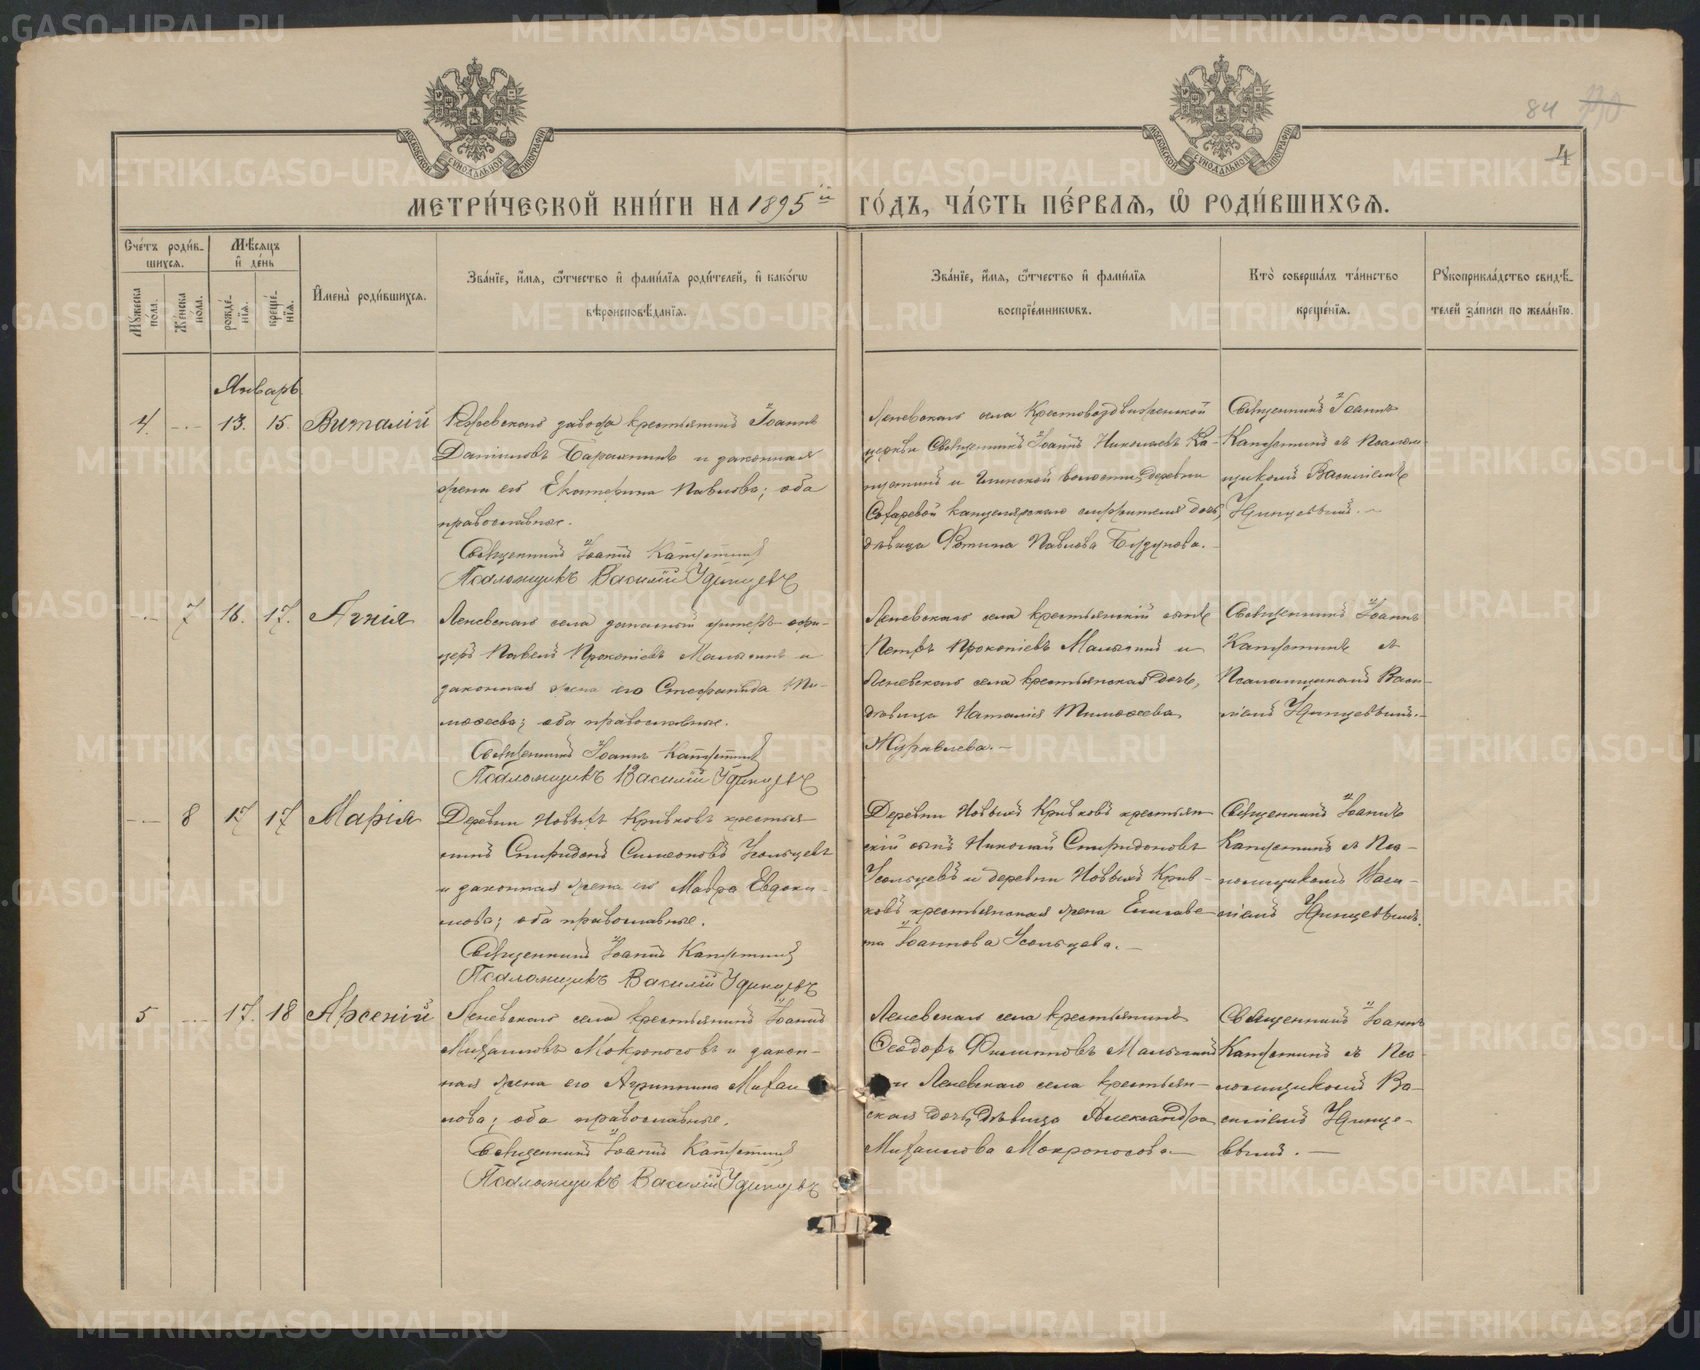 84
4
МЕТРИ́ЧЕСКОЙ КНИ́ГИ НА 1895й ГО́ДЪ, ЧА́СТЬ ПЕ́РВАѦ, Ѡ҆ РОДИ́ВШИХСѦ.
Сче́тъ роди́в-
шихсѧ.
Мꙋ́жеска по́ла.
Же́нска по́ла.
Мѣ́сѧцъ
и҆ де́нь
рожде́-
нїѧ.
креще́-
нїѧ.
И҆мена̀ роди́вшихсѧ.
Зва́нїе, и҆́мѧ, ѻ҆́тчество и҆ фами́лїѧ роди́телей, и҆ како́гѡ
вѣроисповѣ́данїѧ.
Зва́нїе, и҆́мѧ, ѻ҆́тчество и҆ фами́лїѧ
воспрїе́мникѡвъ.
Кто̀ соверша́лъ та́инство
креще́нїѧ.
Рꙋкоприкла́дство свидѣ́-
телей за́писи по жела́нїю.
Январь
4. 13. 15. Виталій
Режевскаго завода крестьянинъ Іоаннъ
Даніиловъ и законная
жена его Екатерина Павлова; оба
православные.
Священникъ Іоаннъ Капустинъ
Псаломщикъ Василій Удинцевъ
Леневскаго села Крестовоздвиженской
церкви Священникъ Іоаннъ Николаевъ Ка-
пустинъ и волости, деревни
Сохаревой дочь,
дѣвица Фотина Павлова
Священникъ Іоаннъ
Капустинъ съ Псалом-
щикомъ Василіемъ
Удинцевымъ. —
7 16. 17. Агнія
Леневскаго села запасный унтеръ-офи-
церъ Павелъ Прокопіевъ Малыгинъ и
законная жена его Стефанида Ти-
моѳеева; оба православные.
Священникъ Іоаннъ Капустинъ
Псаломщикъ Василій Удинцевъ
Леневскаго села крестьянскій сынъ
Петръ Прокопіевъ Малыгинъ и
Леневскаго села крестьянская дочь,
дѣвица Наталія Тимоѳеева
Журавлева. —
Священникъ Іоаннъ
Капустинъ съ
Псаломщикомъ Васи-
ліемъ Удинцевымъ. —
8 17 17 Марія
Деревни Новыхъ Кривковъ крестья-
нинъ Спиридонъ Симеоновъ Усольцевъ
и законная жена его Мавра Евдоки-
мова; оба православные.
Священникъ Іоаннъ Капустинъ
Псаломщикъ Василій Удинцевъ
Деревни Новыхъ Кривковъ крестьян-
скій сынъ Николай Спиридоновъ
Усольцевъ и деревни Новыхъ Крив-
ковъ крестьянская жена Елисаве-
та Іоаннова Усольцева. —
Священникъ Іоаннъ
Капустинъ съ Пса-
ломщикомъ Васи-
ліемъ Удинцевымъ.
5 17. 18 Арсеній
Леневскаго села крестьянинъ Іоаннъ
Михаиловъ Мокроносовъ и закон-
ная жена его Агриппина Михаи-
лова; оба православные.
Священникъ Іоаннъ Капустинъ
Псаломщикъ Василій Удинцевъ
Леневскаго села крестьянинъ
Ѳеодоръ Филипповъ Малыгинъ
и Леневскаго села крестьян-
ская дочь, дѣвица Александра
Михаилова Мокроносова —
Священникъ Іоаннъ
Капустинъ съ Пса-
ломщикомъ Ва-
силіемъ Удинце-
вымъ. —